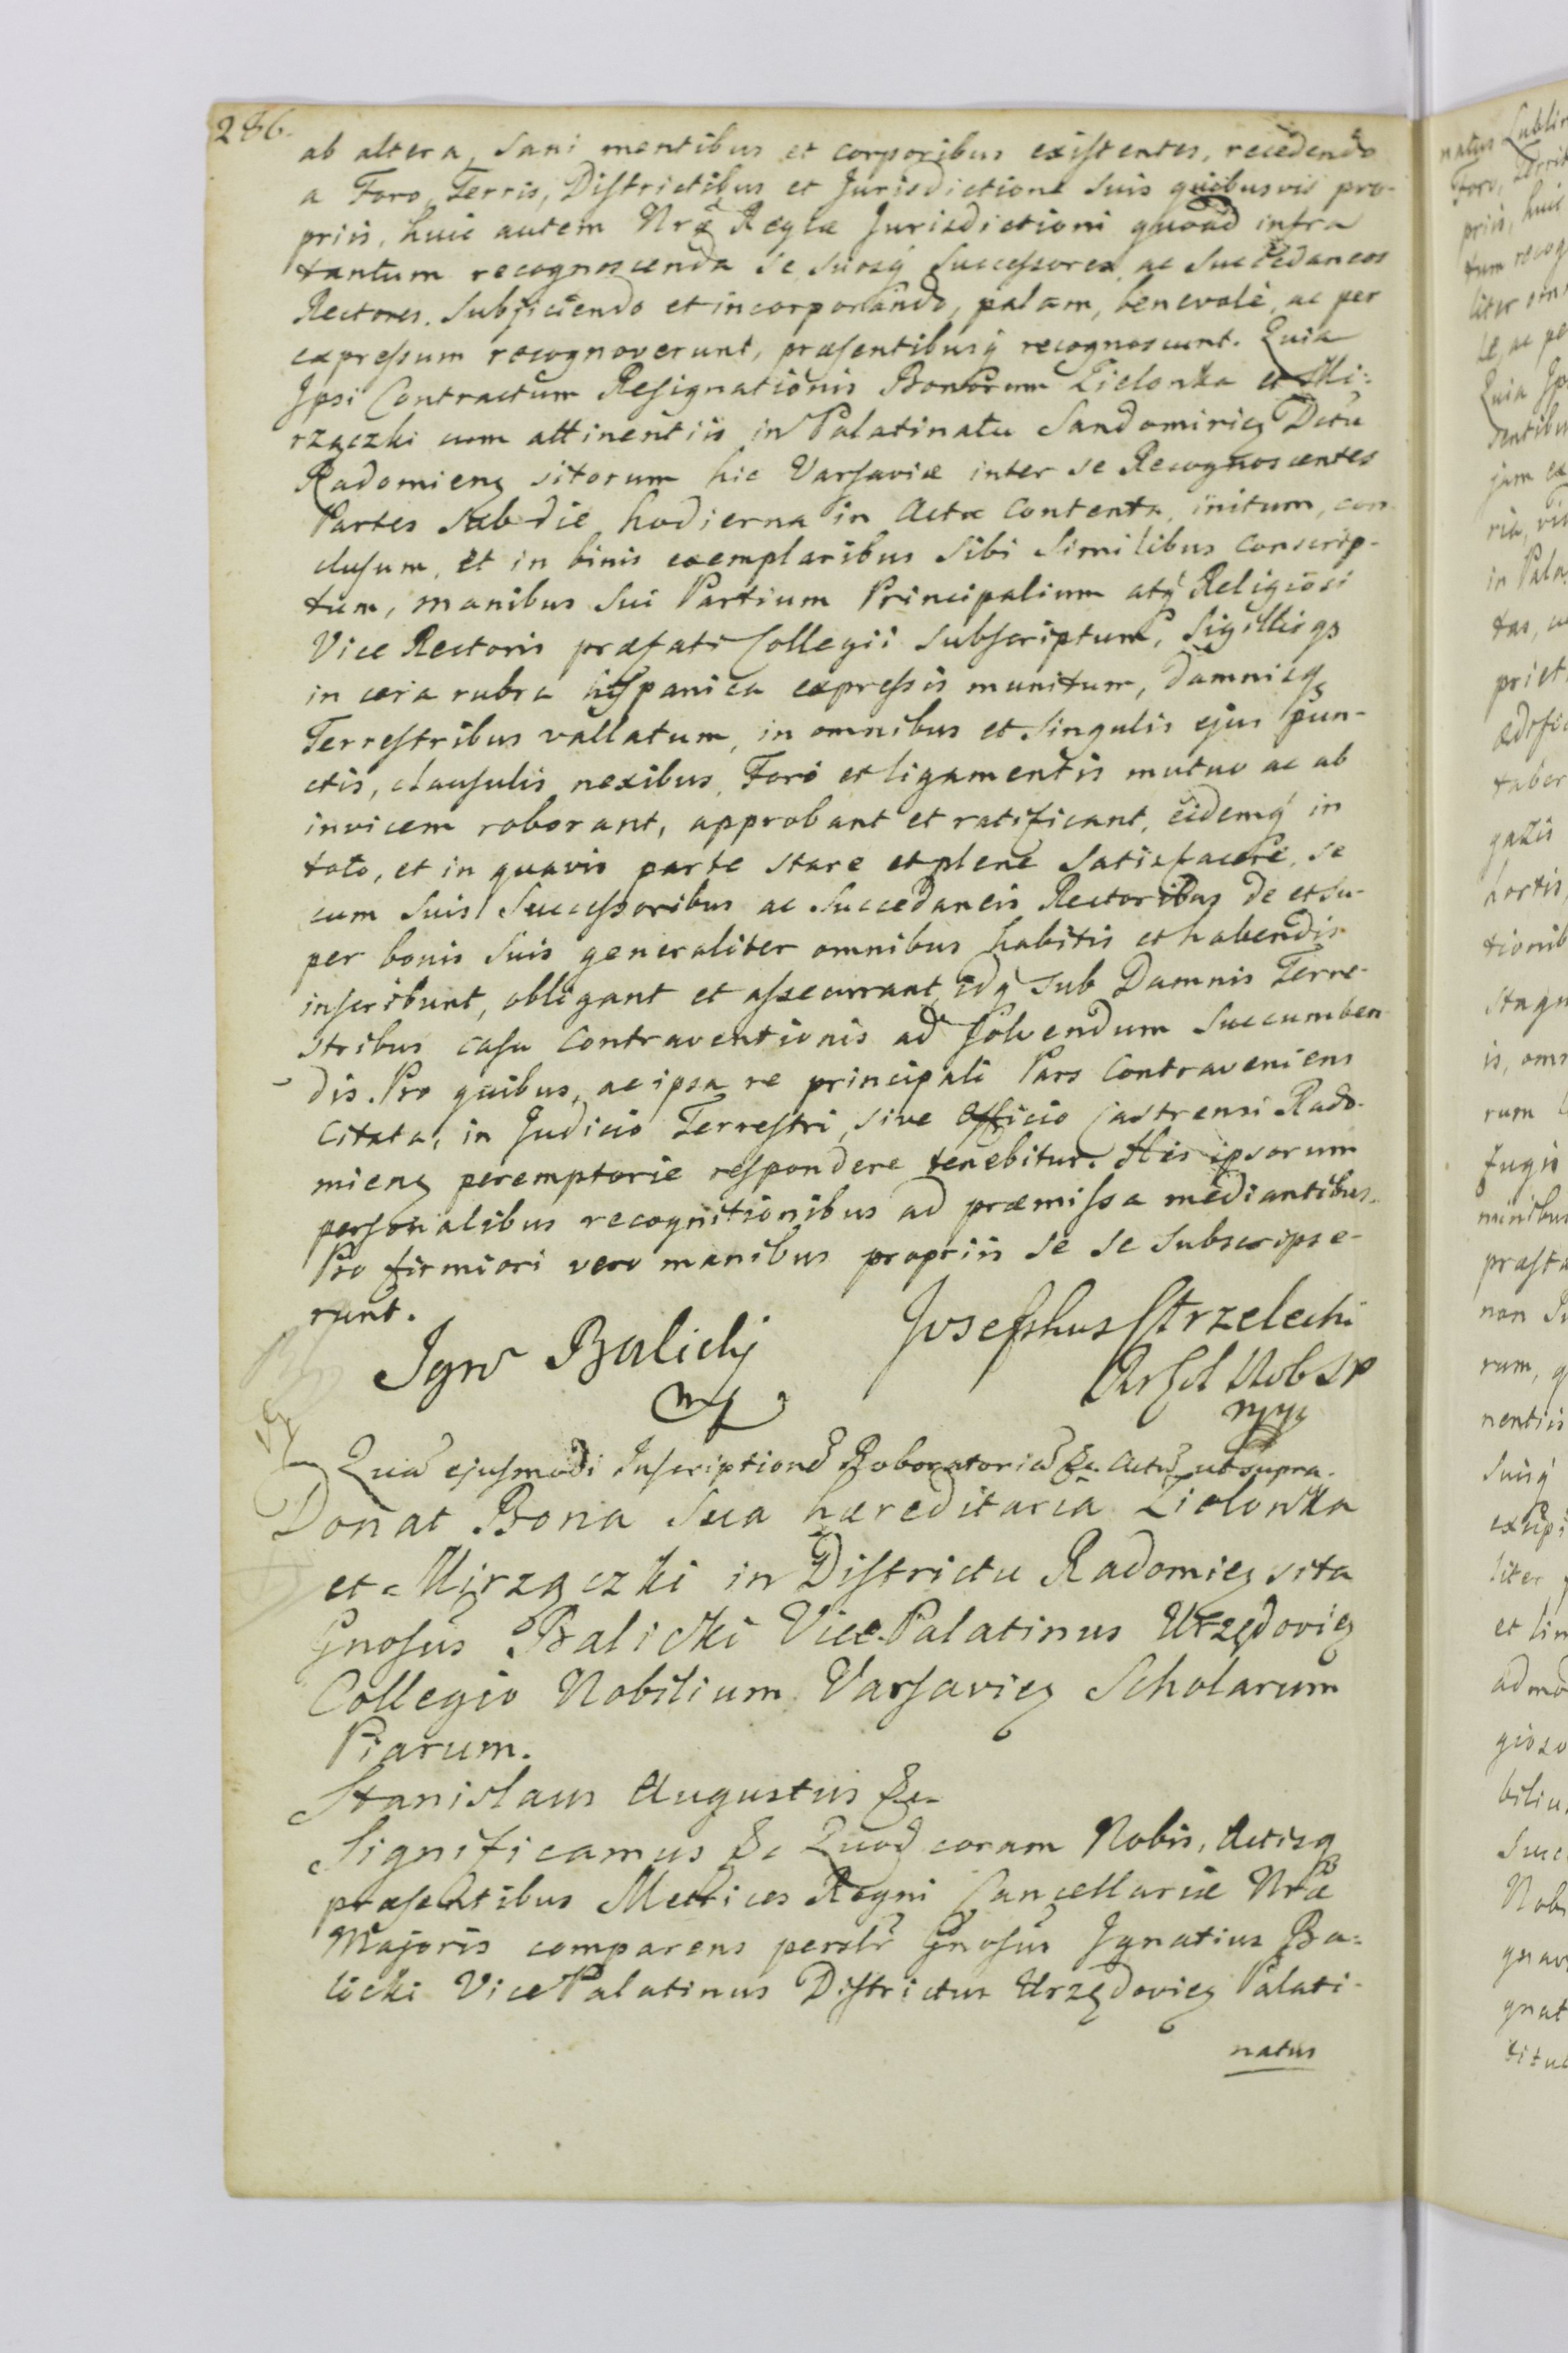 286.
ab altera, sani mentibus et corporibus existentes, recedendo
a Foro, Terris, Districtibus et Jurisdictione suis quibusvis pro-
priis, huic autem Nræ Regiæ Jurisdictioni quoad infra
tantum recognoscenda se suosq́ successores ac succedaneos
Rectores. Subjiciendo et incorporando, palam, benevolè, ac per
expressum recognoverunt, præsentibusq́ recognoscunt. Quia
Ipsi Contractum Resignationis Bonorum Zielonka et Mi-
rzączki cum attinentiis in Palatinatu Sandomirieñ Dctu
Radomieñ sitorum hic Varsaviæ inter se Recognoscentes
Partes sub die hodierna in Acto contenta, initum, con-
clusum, et in binis exemplaribus sibi similibus conscrip-
tum, manibus sui Partium Principalium atq́ Religiosi
Vice Rectoris præfati Collegii subscriptum, sigillisq́
in cera rubra hispanica expressis munitum, damnisq́
Terrestribus vallatum, in omnibus et singulis ejus pun-
ctis, clausulis nexibus, Foro et ligamentis mutuo ac ab
invicem roborant, approbant et ratificant, eidemq́ in
toto, et in quavis parte stare et plene satisfacere, se
cum suis successoribus ac succedaneis Rectoribus de et su-
per bonis suis generaliter omnibus habitis et habendis
inscribunt, obligant et assecurant, idq́ sub Damnis Terre-
stribus casu contraventionis ad solvendum succumben
dis. Pro quibus, ac ipsa re principali Pars contraveniens
citata, in Judicio Terrestri, sive Officio Castrensi Rado-
mieñ peremptorie respondere tenebitur. His ipsorum
personalibus recognitionibus ad præmissa mediantibus.
Pro firmiori vero manibus propriis se se subscripse-
runt.
Josephus Strzelecki
Ign Balicki
mp
Quã ejusmodi Inscriptionẽ Roboratoriã &c. Actũ ut supra.
Donat Bona sua hæreditaria Zielonka
et Mirzączki in Districtu Radomieñ sita
Gnosus Balicki Vice-Palatinus Urzędovieñ
Collegio Nobilium Varsavieñ Scholarum
Piarum.
Stanislaus Augustus &c.
Significamus &c Quod coram Nobis, Actisq́
præsentibus Metrices Regni Cancellariæ Nræ
Majoris comparens persoñlr Gnosus Ignatius Ba-
licki Vice Palatinus Districtus Urzędovieñ Palati-
natus